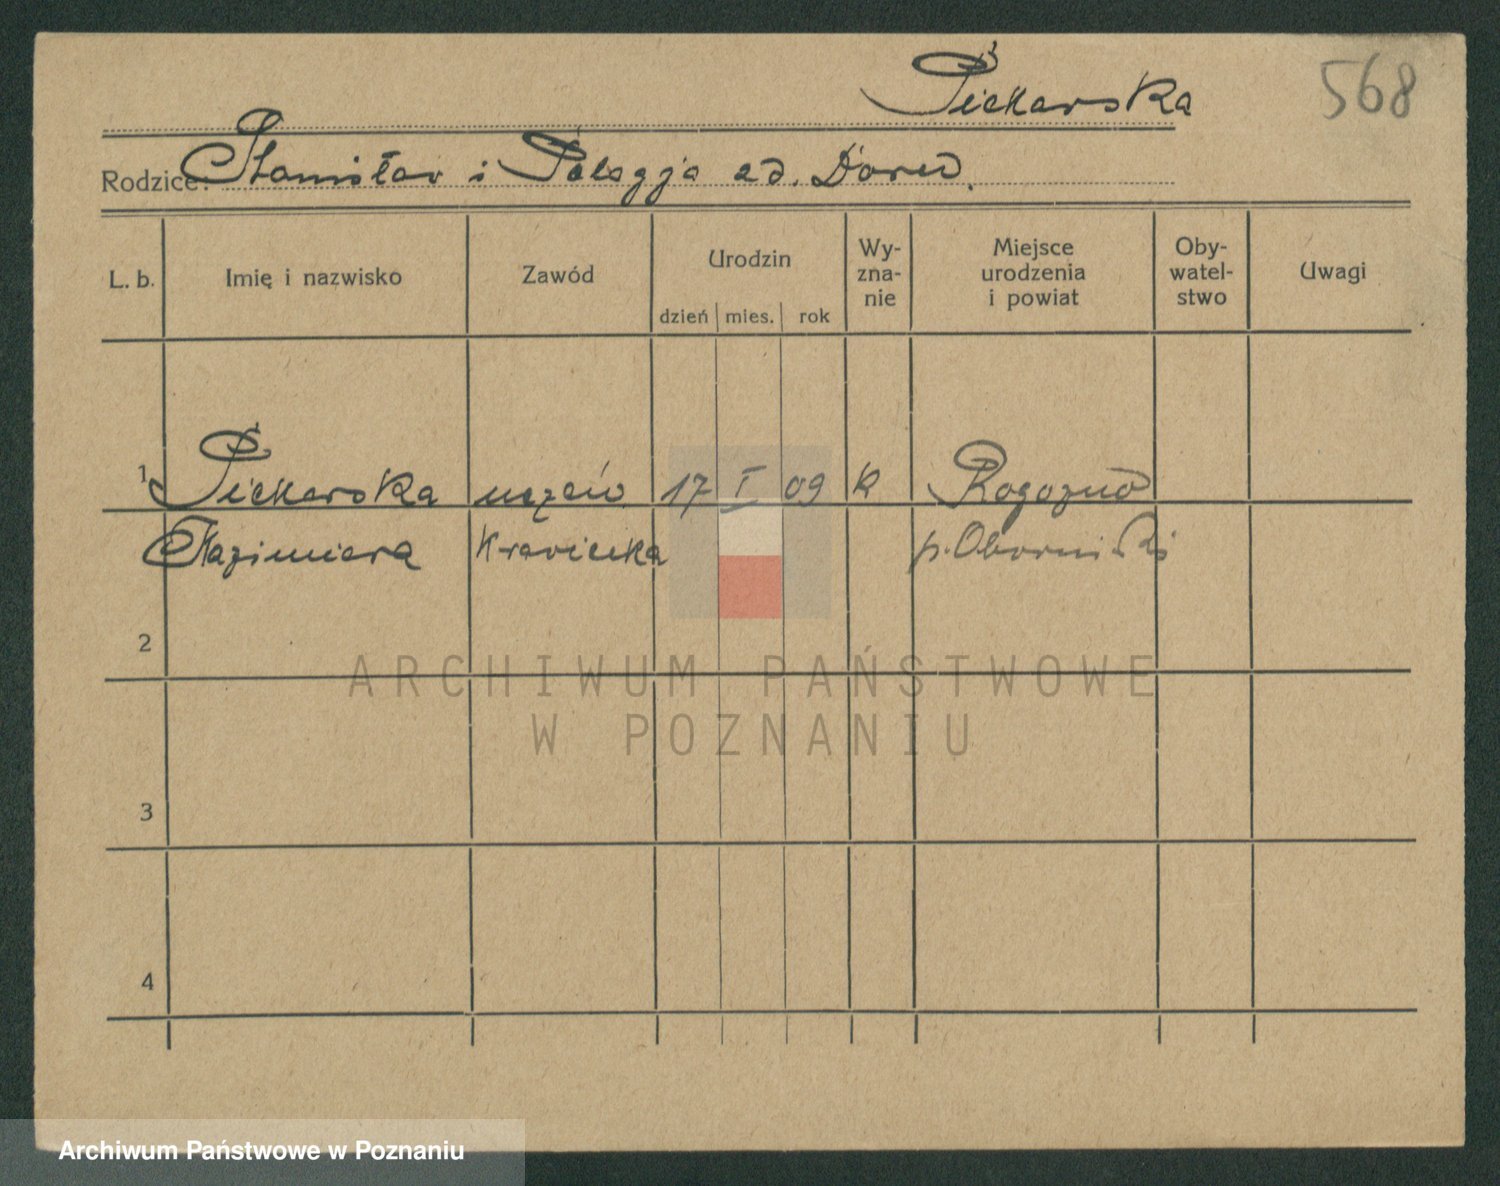 Piekarska
568
Rodzice: Stanisław i Pelagja zd.
L. b.
Imię i nazwisko
Zawód
Urodzin
dzień mies. rok
Wy-
zna-
nie
Miejsce
urodzenia
i powiat
Oby-
watel-
stwo
Uwagi
1 Piekarska uczeń 17 I 09 k Rogoźno
Kazimiera krawiecka p. Obornicki
2
3
4
ARCHIWUM PAŃSTWOWE
W POZNANIU
Archiwum Państwowe w Poznaniu